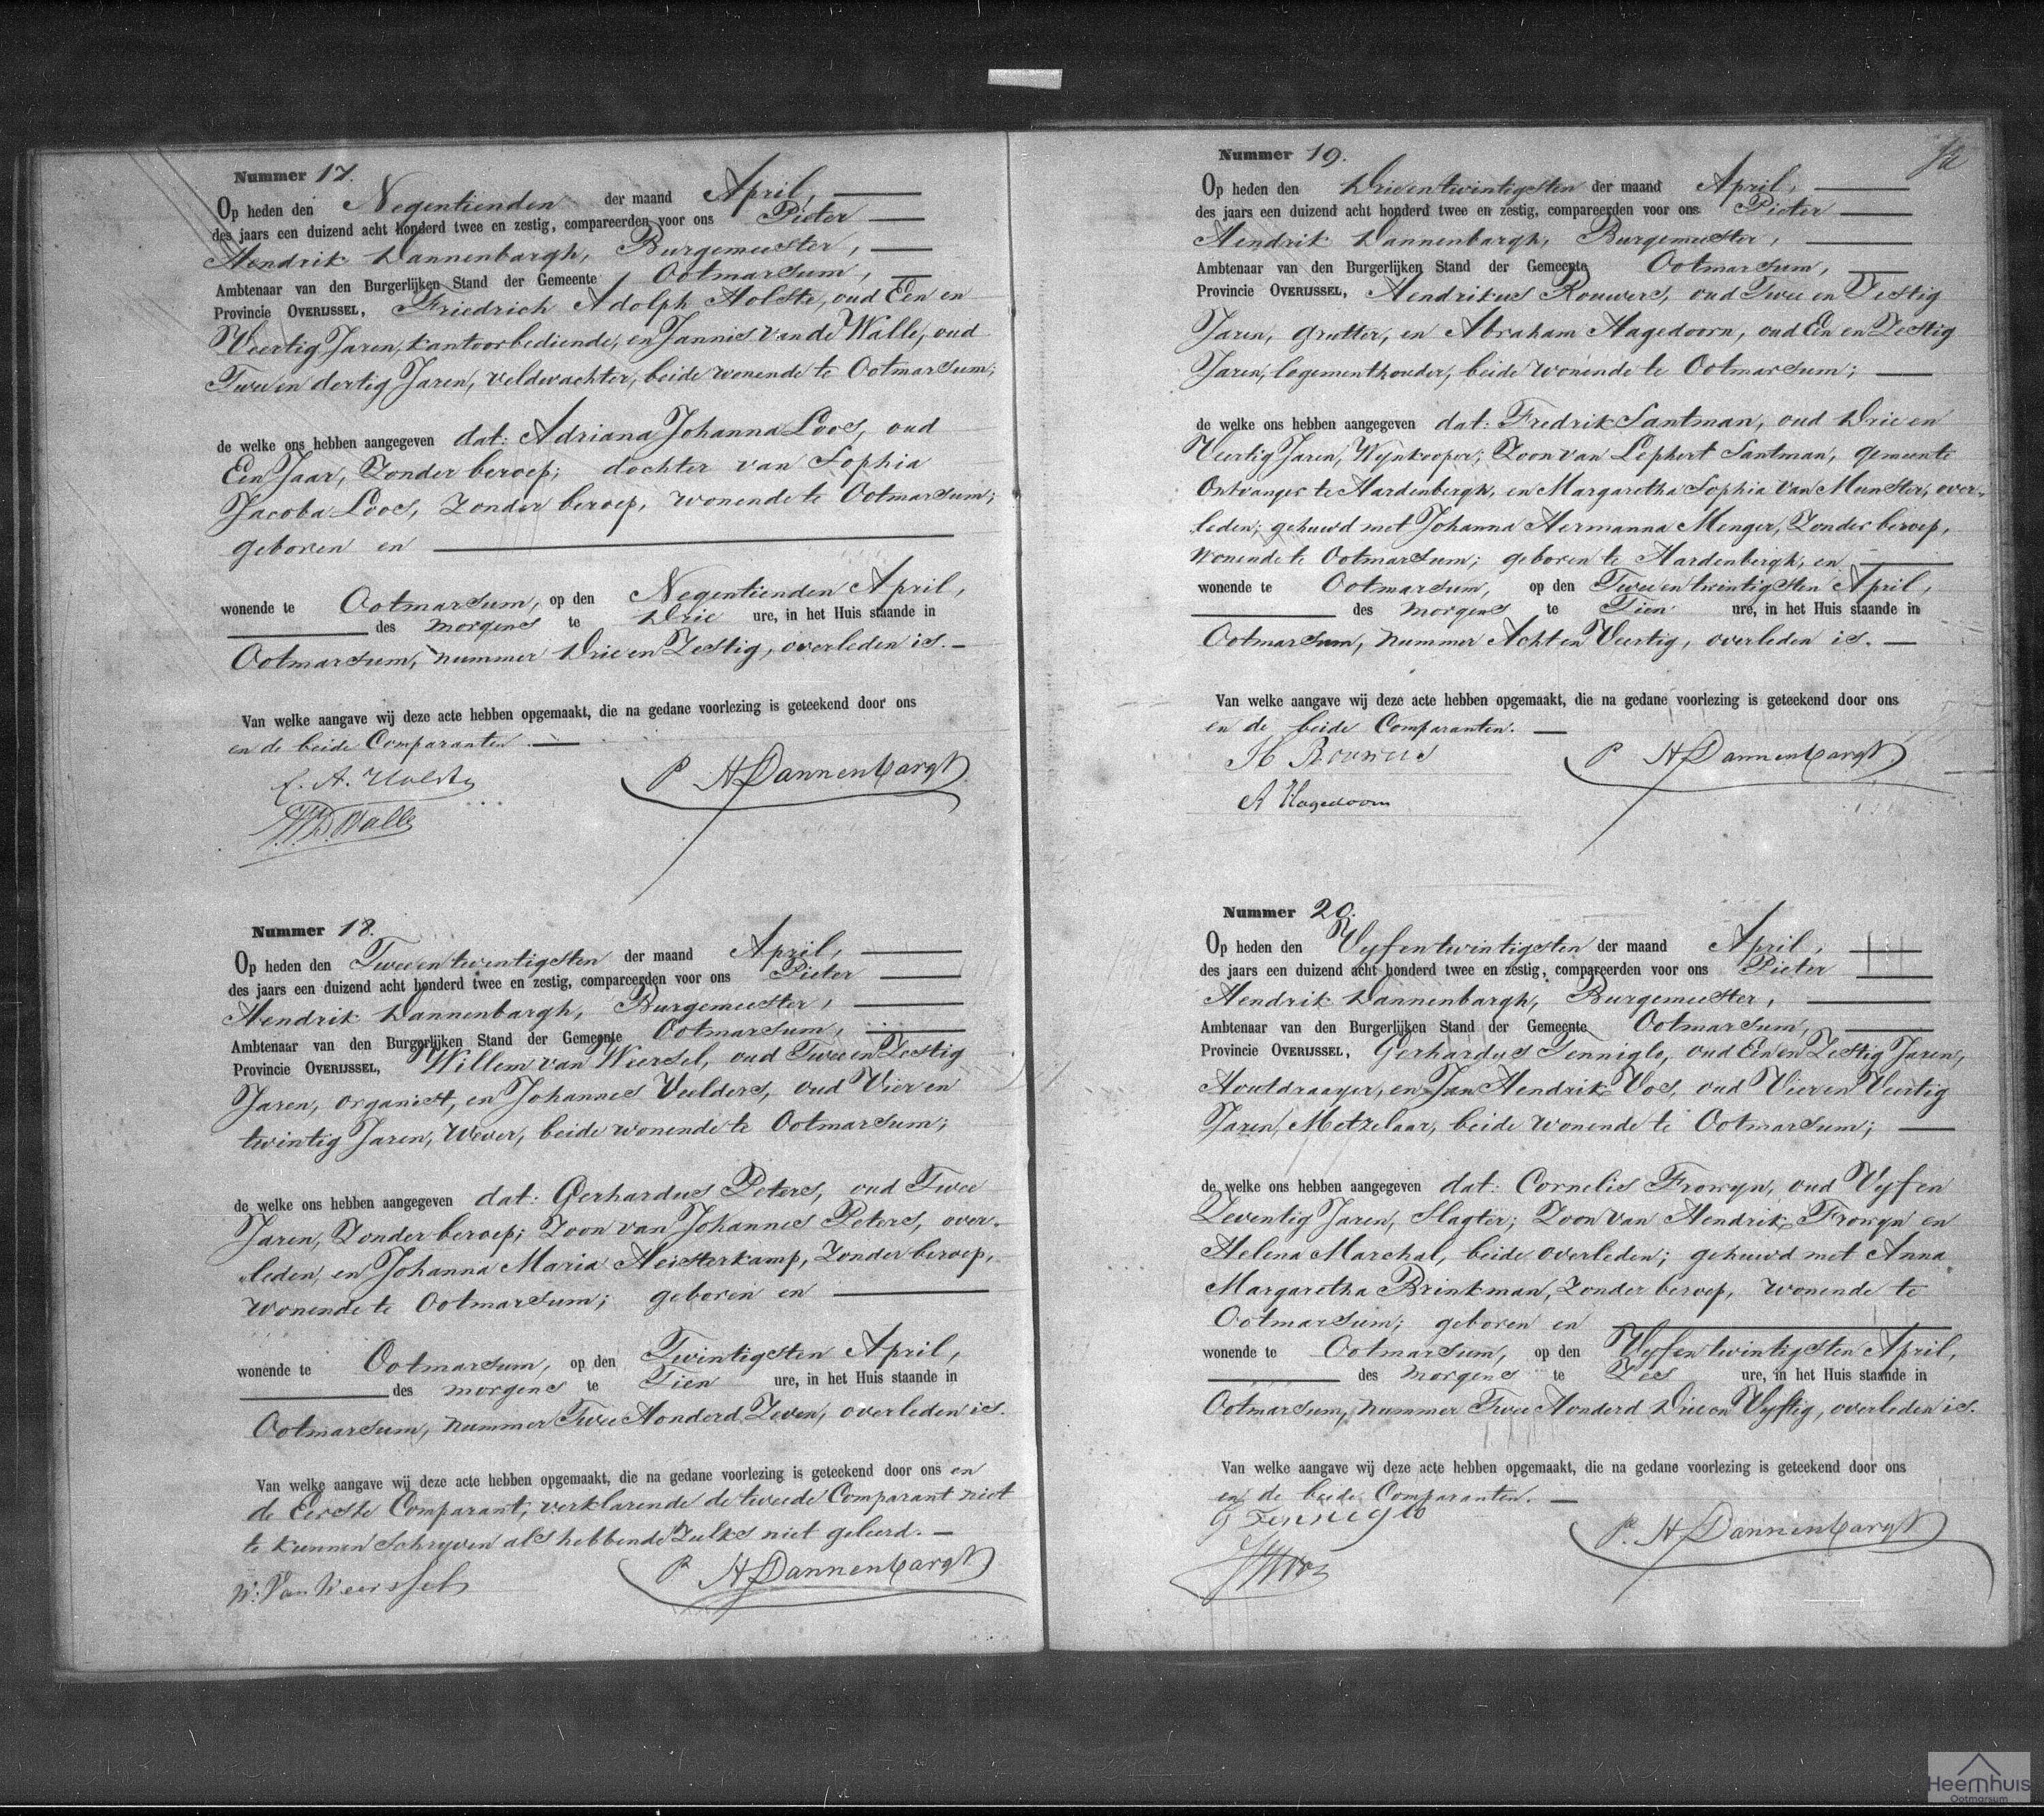 Nummer 17.
Op heden den Negentienden der maand April,
des jaars een duizend acht honderd twee en zestig, compareerden voor ons Pieter
Hendrik Dannenbargh, Burgemeester,
Ambtenaar van den Burgerlijken Stand der Gemeente Ootmarsum,
Provincie OVERIJSSEL, Friedrich Adolph Holste, oud Een en
Veertig Jaren, kantoorbediende, en Jannis van de Walle, oud
Twee en dertig Jaren, veldwachter, beide wonende te Ootmarsum;
de welke ons hebben aangegeven dat: Adriana Johanna Loos, oud
Een Jaar, Zonder beroep; dochter van Sophia
Jacoba Loos, Zonder beroep, wonende te Ootmarsum;
geboren en
wonende te Ootmarsum, op den Negentienden April,
des morgens te Drie ure, in het Huis staande in
Ootmarsum, nummer Drie en Zestig, overleden is.
Van welke aangave wij deze acte hebben opgemaakt, die na gedane voorlezing is geteekend door ons
en de beide Comparanten.
F. A. Holste P H Dannenbargh
JVDWalle
Nummer 18.
Op heden den Twee en twintigsten der maand April,
des jaars een duizend acht honderd twee en zestig, compareerden voor ons Pieter
Hendrik Dannenbargh, Burgemeester,
Ambtenaar van den Burgerlijken Stand der Gemeente Ootmarsum,
Provincie OVERIJSSEL, Willem van Weersel, oud Twee en Zestig
Jaren, organist, en Johannes Velders, oud Vier en
twintig Jaren, Wever, beide wonende te Ootmarsum;
de welke ons hebben aangegeven dat: Gerhardus Peters, oud Twee
Jaren, Zonder beroep; Zoon van Johannes Peters, over-
leden, en Johanna Maria Heisterkamp, Zonder beroep,
wonende te Ootmarsum; geboren en
wonende te Ootmarsum, op den Twintigsten April,
des morgens te Tien ure, in het Huis staande in
Ootmarsum, nummer Twee Honderd Zeven, overleden is.
Van welke aangave wij deze acte hebben opgemaakt, die na gedane voorlezing is geteekend door ons en
de Eerste Comparant, verklarende de tweede Comparant niet
te kunnen Schryven als hebbende Zulks niet geleerd.
W. Van Weerssel P H Dannenbargh
Nummer 19.
Op heden den Drie en twintigsten der maand April,
des jaars een duizend acht honderd twee en zestig, compareerden voor ons Pieter
Hendrik Dannenbargh, Burgemeester,
Ambtenaar van den Burgerlijken Stand der Gemeente Ootmarsum,
Provincie OVERIJSSEL, Hendrikus Rouwers, oud Twee en Zestig
Jaren, grutter, en Abraham Hagedoorn, oud Een en Zestig
Jaren, logementhouder, beide wonende te Ootmarsum;
de welke ons hebben aangegeven dat: Fredrik Santman, oud Drie en
Veertig Jaren, Wynkooper; Zoon van Lephert Santman, gemeente
Ontvanger te Hardenbergh, en Margaretha Sophia van Munster, over-
leden; gehuwd met Johanna Hermanna Menger, Zonder beroep,
wonende te Ootmarsum; geboren te Hardenbergh, en
wonende te Ootmarsum, op den Twee en twintigsten April,
des morgens te Tien ure, in het Huis staande in
Ootmarsum, nummer Acht en Veertig, overleden is.
Van welke aangave wij deze acte hebben opgemaakt, die na gedane voorlezing is geteekend door ons
en de beide Comparanten.
P H Dannenbargh
A Hagedoorn
Nummer 20.
Op heden den Vyf en twintigsten der maand April,
des jaars een duizend acht honderd twee en zestig, compareerden voor ons Pieter
Hendrik Dannenbargh, Burgemeester,
Ambtenaar van den Burgerlijken Stand der Gemeente Ootmarsum,
Provincie OVERIJSSEL, Gerhardus Tenniglo, oud Een en Zestig Jaren,
Houtdraayer, en Jan Hendrik Vos, oud Vier en Veertig
Jaren, Metzelaar, beide wonende te Ootmarsum;
de welke ons hebben aangegeven dat: Cornelis Frowyn, oud Vyf en
Zeventig Jaren, Slagter; Zoon van Hendrik Frowyn en
Helena Marchal, beide overleden; gehuwd met Anna
Margaretha Brinkman, Zonder beroep, wonende te
Ootmarsum; geboren en
wonende te Ootmarsum, op den Vyf en twintigsten April,
des morgens te Zes ure, in het Huis staande in
Ootmarsum, nummer Twee Honderd Drie en Vyftig, overleden is.
Van welke aangave wij deze acte hebben opgemaakt, die na gedane voorlezing is geteekend door ons
en de beide Comparanten.
G Tenniglo P. H Dannenbargh
JHVos
Heemhuis
Ootmarsum